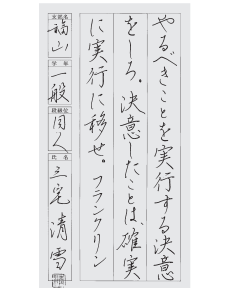 やるべきことを実行する決意
をしろ。決意したことは、確実
に実行に移せ。フランクリン
支部名
福山
学年
一般
段級位
同人
氏名
三宅清雪